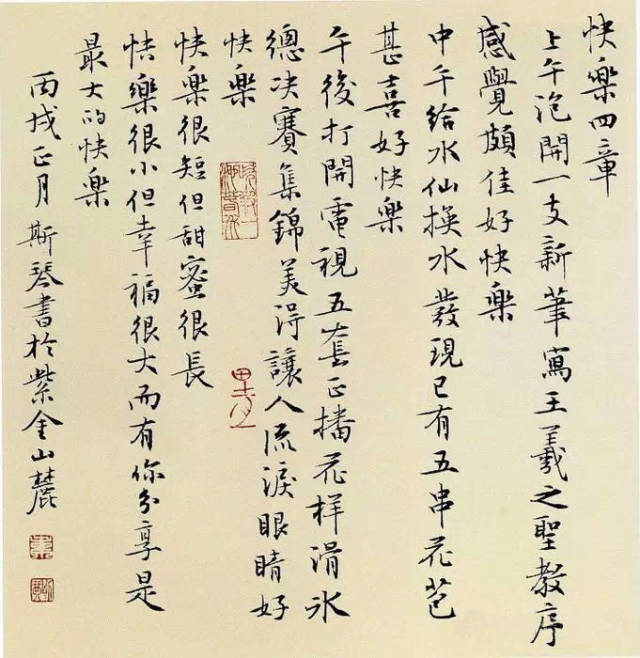 快樂四章
上午泡開一支新筆寫王羲之聖教序
感覺頗佳好快樂
中午給水仙換水發現已有五串花苞
甚喜好快樂
午後打開電視五套正播花樣滑冰
總決賽集錦美得讓人流淚眼睛好
快樂
快樂很短但甜蜜很長
快樂很小但幸福很大而有你分享是
最大的快樂
丙戌正月斯琴書於紫金山麓